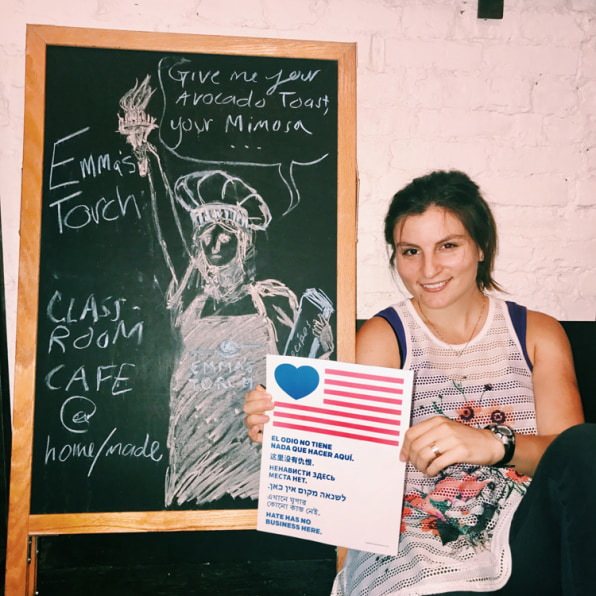 Give me your
Avocado Toast,
your Mimosa
...
Emma's
Torch
CLASS-
ROOM
CAFE
@
home/made
EMMA'S
TORCH
EL ODIO NO TIENE
NADA QUE HACER AQUÍ.
这里没有仇恨.
НЕНАВИСТИ ЗДЕСЬ
МЕСТА НЕТ.
לשנאה מקום אין כאן.
এখানে ঘৃণার
কোনো কাজ নেই.
HATE HAS NO
BUSINESS HERE.